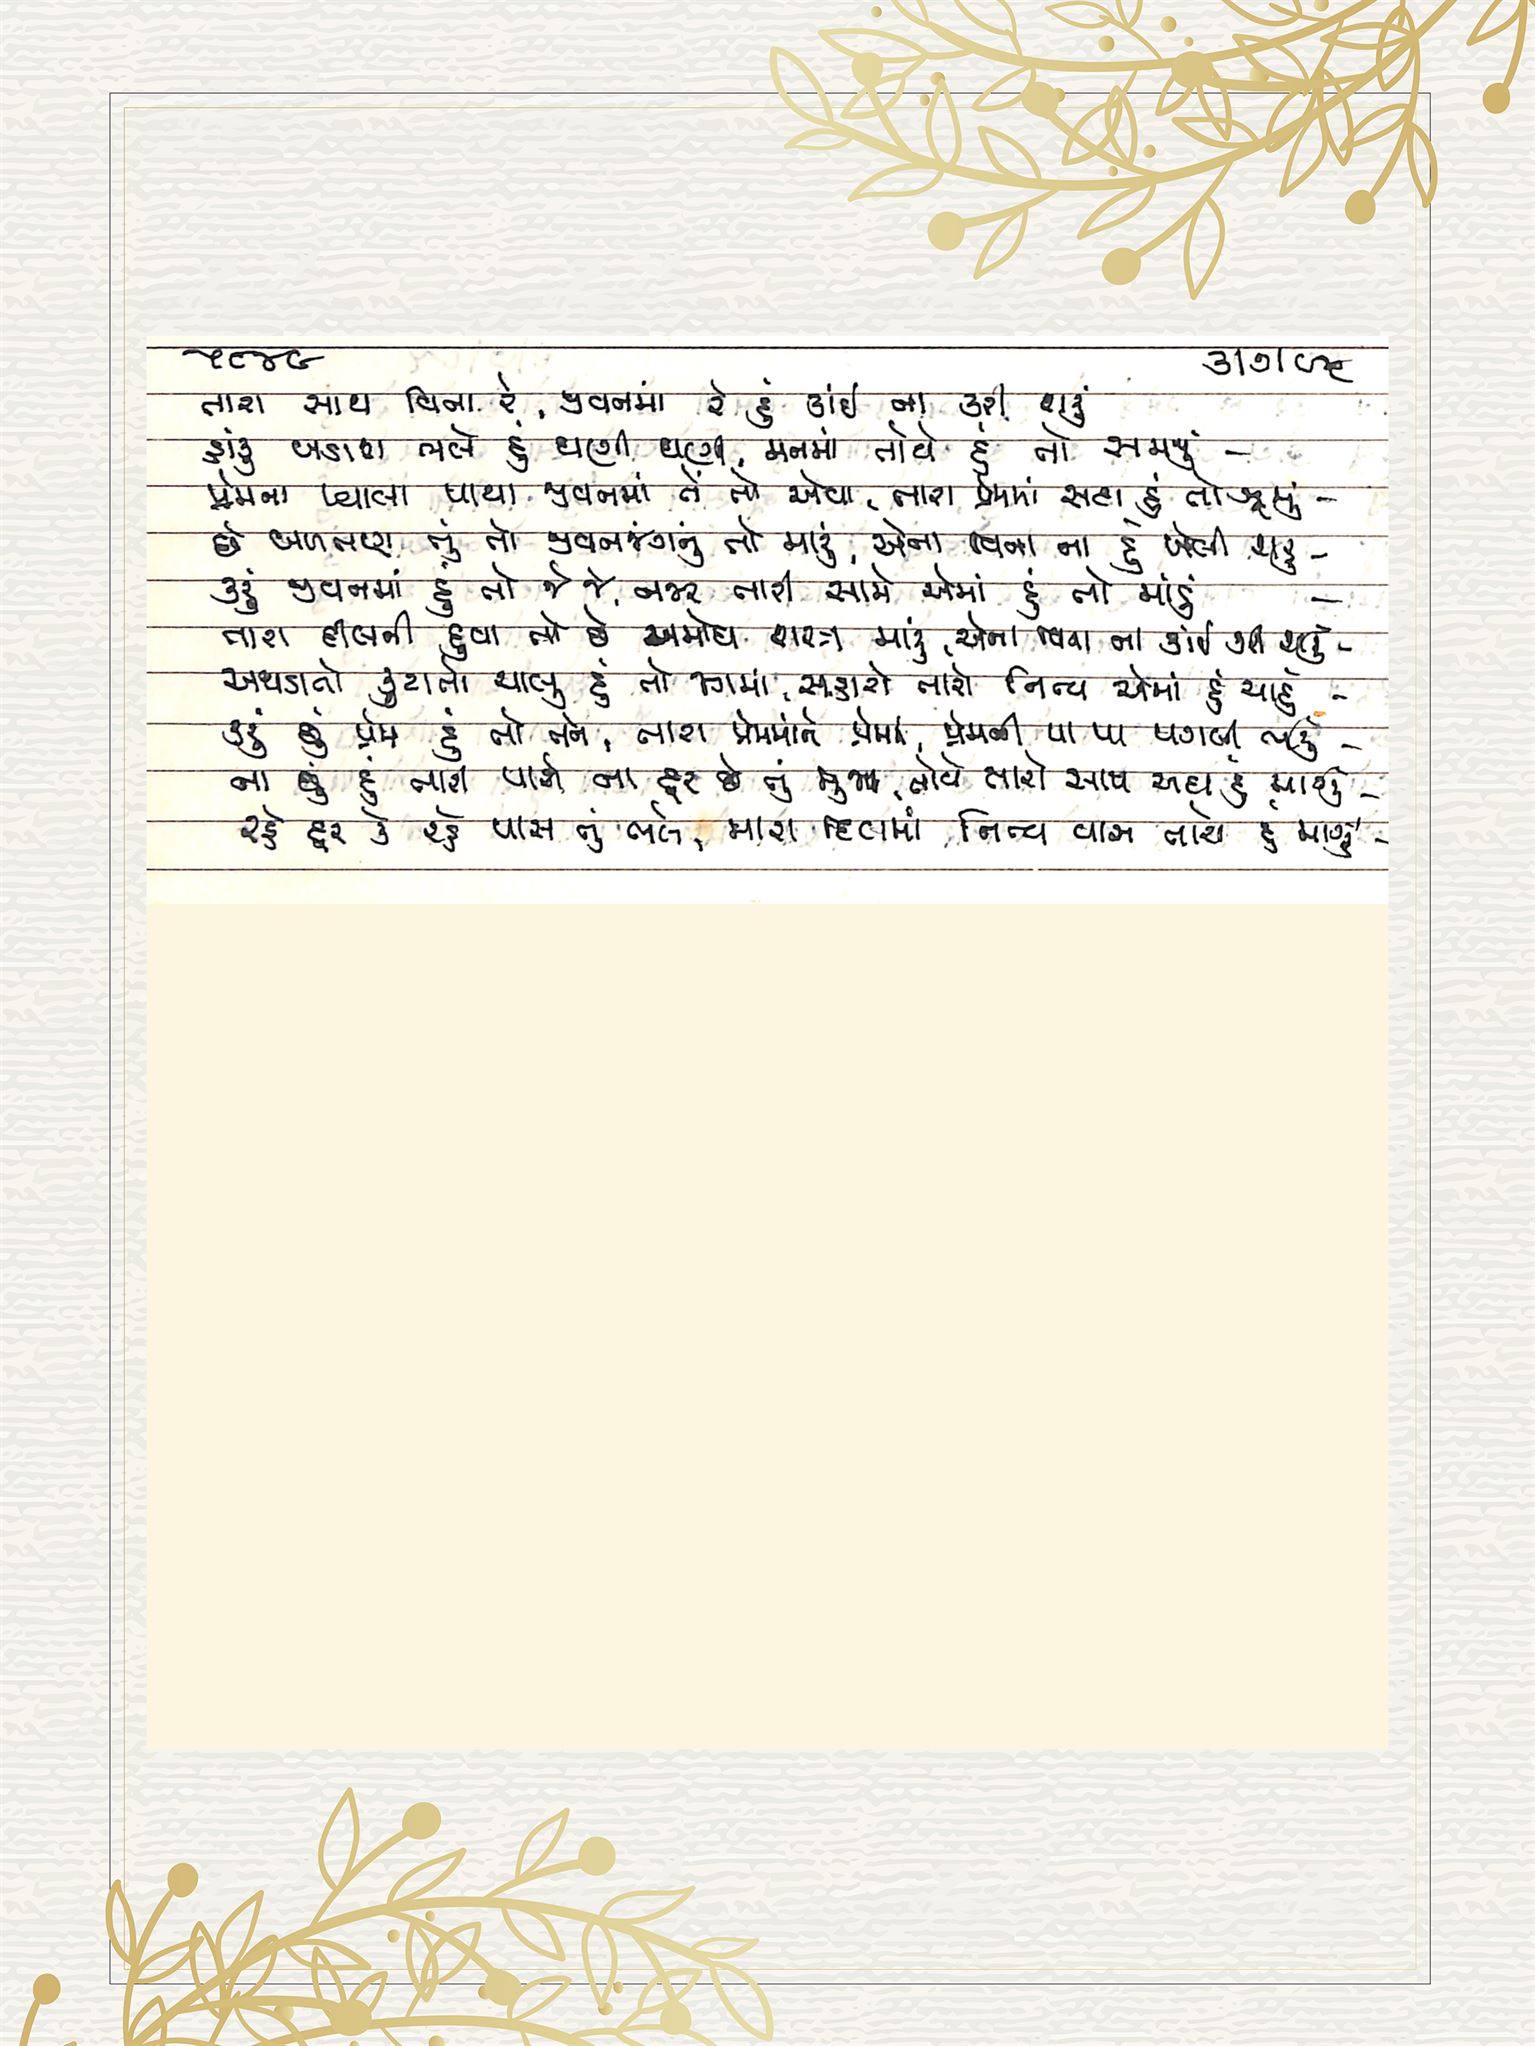 ૫૯૪૯ ૩।૭।૯૫
તારા સાથ વિના રે, જીવનમાં રે હું કાંઈ ના કરી શકું
હાંકું બડાશ ભલે હું ઘણી ઘણી, મનમાં તોયે હું તો સમજું -
પ્રેમના પ્યાલા પાયા જીવનમાં તેં તો એવા, તારા પ્રેમમાં સદા હું તો ઝૂમું -
છે બળતણ તું તો જીવનજંગનું તો મારું, એના વિના ના હું ખેલી શકું -
કરું જીવનમાં હું તો જે જે, નજર તારી સામે એમાં હું તો માંડું -
તારા દીલની દુવા તો છે અમોઘ શસ્ત્ર મારું, એના વિના ના કાંઈ કરી શકું -
અથડાતો કુટાતો ચાલુ હું તો જગમાં, સહારો તારો નિત્ય એમાં હું ચાહું -
કરું છું પ્રેમ હું તો તને, તારા પ્રેમમાંને પ્રેમમાં, પ્રેમની પા પા પગલી ભરું -
ના છું હું તારી પાસે ના દૂર છે તું મુજથી, તોયે તારો સાથ સદા હું માગું -
રહે દૂર કે રહે પાસ તું ભલે, મારા દિલમાં નિત્ય વાસ તારો હું માગું -